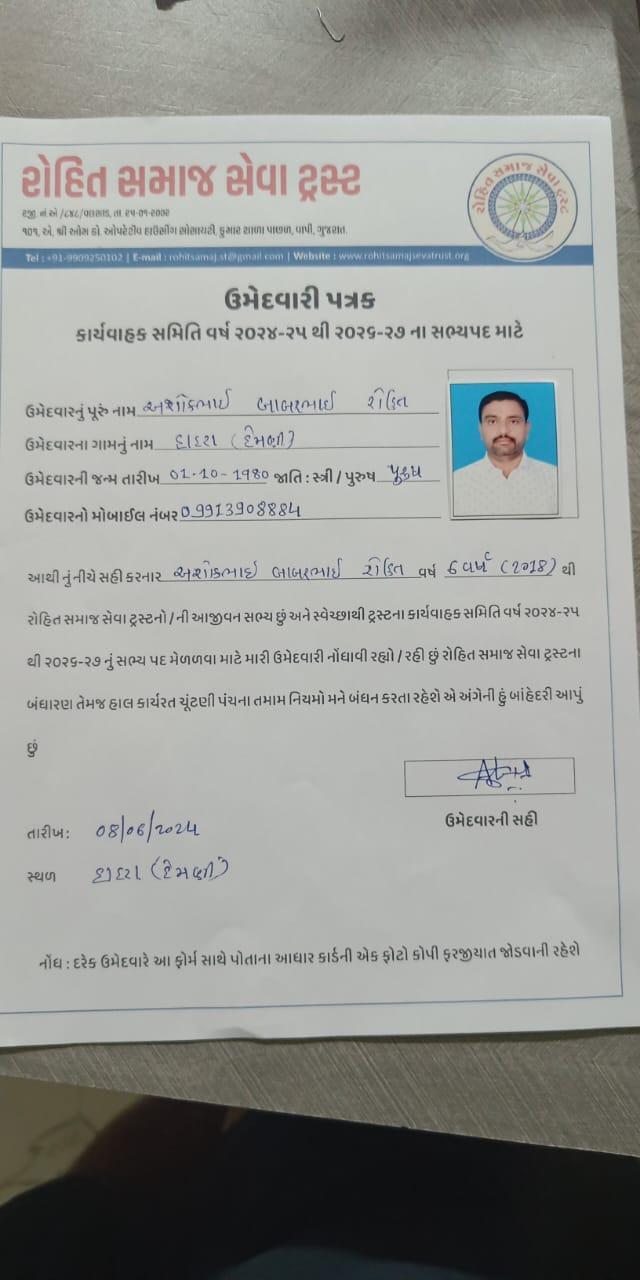 રોહિત સમાજ સેવા ટ્રસ્ટ
રજી. નં એ /૮૪૮/વલસાડ, તા. ૨૫-૦૧-૨૦૦૨
૧૦૧, એ, શ્રી ઓમ કો. ઓપરેટીવ હાઉસીંગ સોસાયટી, કુમાર શાળા પાછળ, વાપી, ગુજરાત.
રોહિત સમાજ સેવા ટ્રસ્ટ
Tel : +91-9909250102 | E-mail : rohitsamaj.st@gmail.com | Website : www.rohitsamajsevatrust.org
ઉમેદવારી પત્રક
કાર્યવાહક સમિતિ વર્ષ ૨૦૨૪-૨૫ થી ૨૦૨૬-૨૭ ના સભ્યપદ માટે
ઉમેદવારનું પૂરું નામ અશોકભાઈ બાબરભાઈ રોહિત
ઉમેદવારના ગામનું નામ દાદરા (દેમણી)
ઉમેદવારની જન્મ તારીખ 01-10-1980 જાતિ : સ્ત્રી / પુરુષ પુરુષ
ઉમેદવારનો મોબાઈલ નંબર 09913908884
આથી નું નીચે સહી કરનાર અશોકભાઈ બાબરભાઈ રોહિત વર્ષ 6 વર્ષ (2018) થી
રોહિત સમાજ સેવા ટ્રસ્ટનો / ની આજીવન સભ્ય છું અને સ્વેચ્છાથી ટ્રસ્ટના કાર્યવાહક સમિતિ વર્ષ ૨૦૨૪-૨૫
થી ૨૦૨૬-૨૭ નું સભ્ય પદ મેળળવા માટે મારી ઉમેદવારી નોંધાવી રહ્યો / રહી છું રોહિત સમાજ સેવા ટ્રસ્ટના
બંધારણ તેમજ હાલ કાર્યરત ચૂંટણી પંચના તમામ નિયમો મને બંધન કરતા રહેશે એ અંગેની હું બાંહેદરી આપું
છું
ઉમેદવારની સહી
તારીખ : 08/06/2024
સ્થળ દાદરા (દેમણી)
નોંધ : દરેક ઉમેદવારે આ ફોર્મ સાથે પોતાના આધાર કાર્ડની એક ફોટો કોપી ફરજીયાત જોડવાની રહેશે